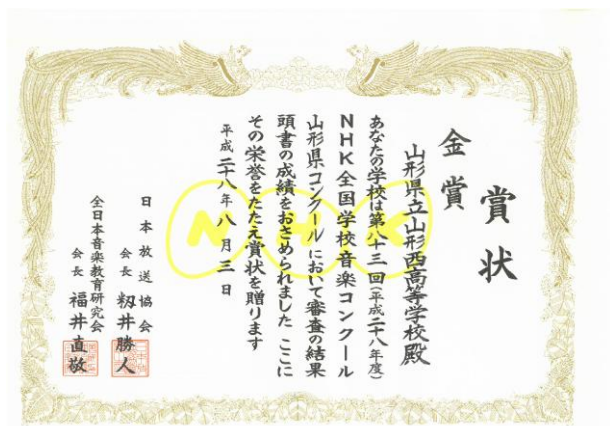 賞状
金賞
山形県立山形西高等学校殿
あなたの学校は第八十三回(平成二十八年度)
NHK全国学校音楽コンクール
山形県コンクールにおいて審査の結果
頭書の成績をおさめられました ここに
その栄誉をたたえ賞状を贈ります
平成二十八年八月三日
日本放送協会
会長 籾井勝人
全日本音楽教育研究会
会長 福井直敬
NHK